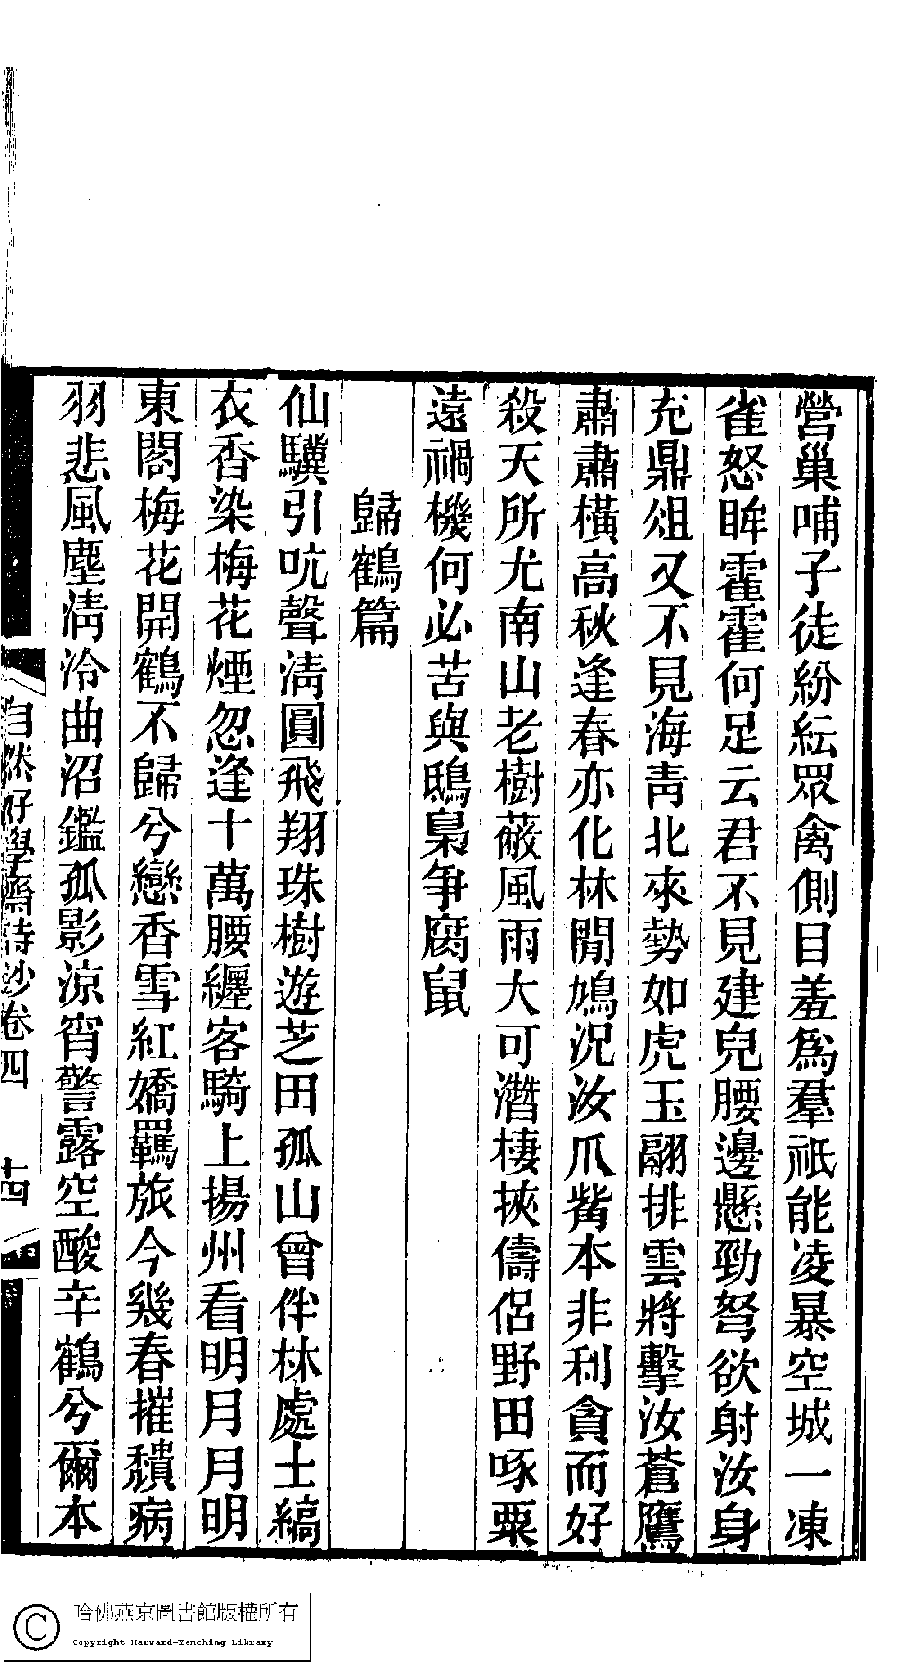 營巢哺子徒紛紜眾禽側目羞為羣祇能凌暴空城一凍
雀怒眸霍霍何足云君不見建兒腰邊懸勁弩欲射汝身
充鼎俎又不見海青北來勢如虎玉翮排雲將擊汝蒼鷹
肅肅橫高秋逢春亦化林閒鳩況汝爪觜本非利貪而好
殺天所尤南山老樹蔽風雨大可潛棲挾儔侶野田啄粟
遠禍機何必苦與鴟梟爭腐鼠
歸鶴篇
仙驥引吭聲清圓飛翔珠樹遊芝田孤山曾伴林處士縞
衣香染梅花煙忽逢十萬腰纏客騎上揚州看明月月明
東閣梅花開鶴不歸兮戀香雪紅嬌羈旅今幾春摧頹病
羽悲風塵清泠曲沼鑑孤影涼宵警露空酸辛鶴兮爾本
自然好學齋詩鈔卷四
十四
哈佛燕京圖書館版權所有
Copyright Harvard-Yenching Library